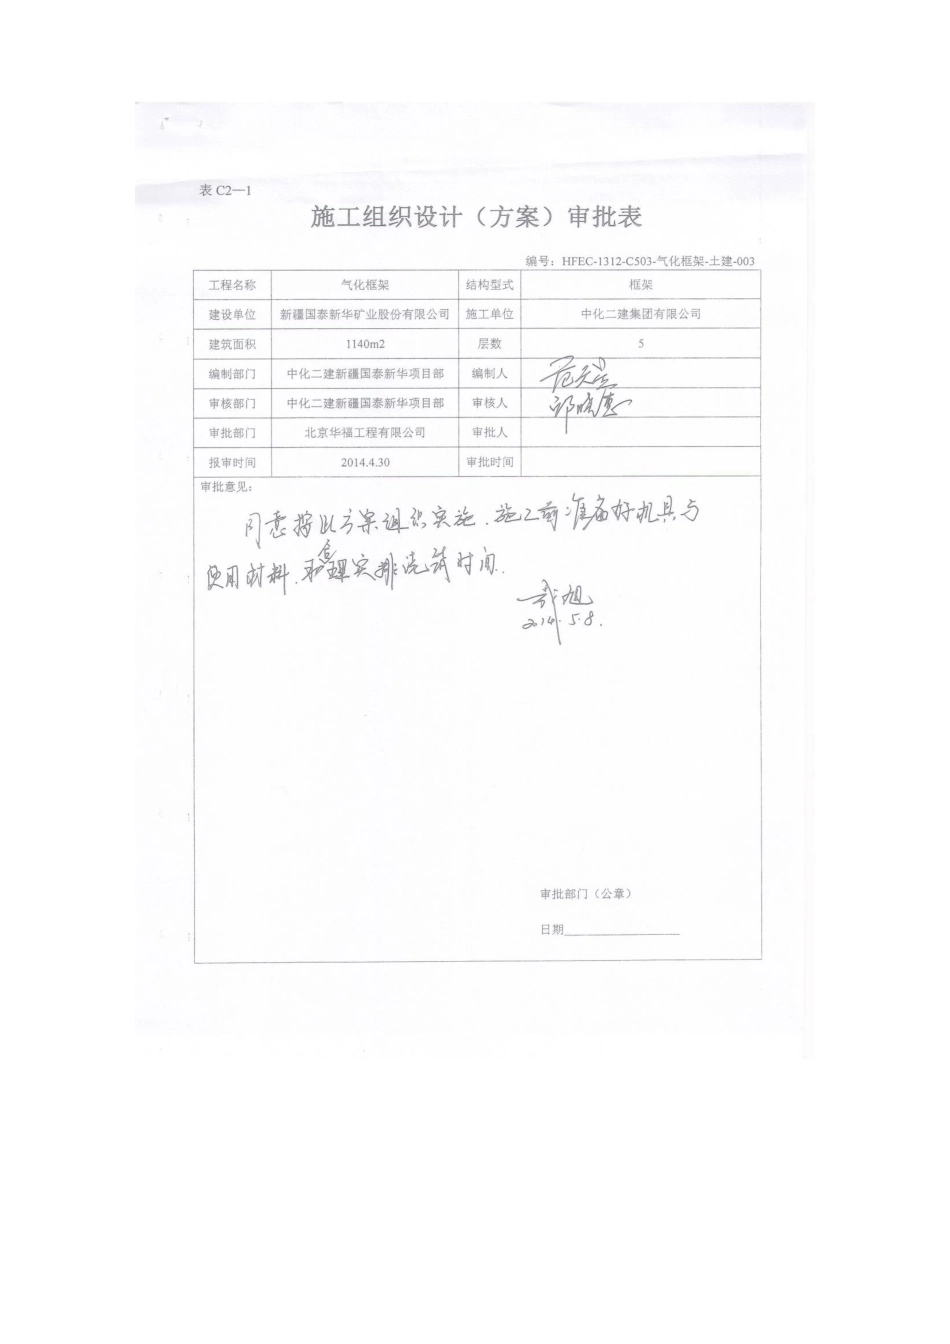 表 C2—1
施工组织设计（方案）审批表
编号：HFEC-1312-C503-气化框架-土建-003
工程名称 气化框架 结构型式 框架
建设单位 新疆国泰新华矿业股份有限公司 施工单位 中化二建集团有限公司
建筑面积 1140m2 层数 5
编制部门 中化二建新疆国泰新华项目部 编制人
审核部门 中化二建新疆国泰新华项目部 审核人
审批部门 北京华福工程有限公司 审批人
报审时间 2014.4.30 审批时间
审批意见：
同意按此方案组织实施，施工前准备好机具与
使用材料，合理安排浇筑时间.
2014.5.8.
审批部门（公章）
日期